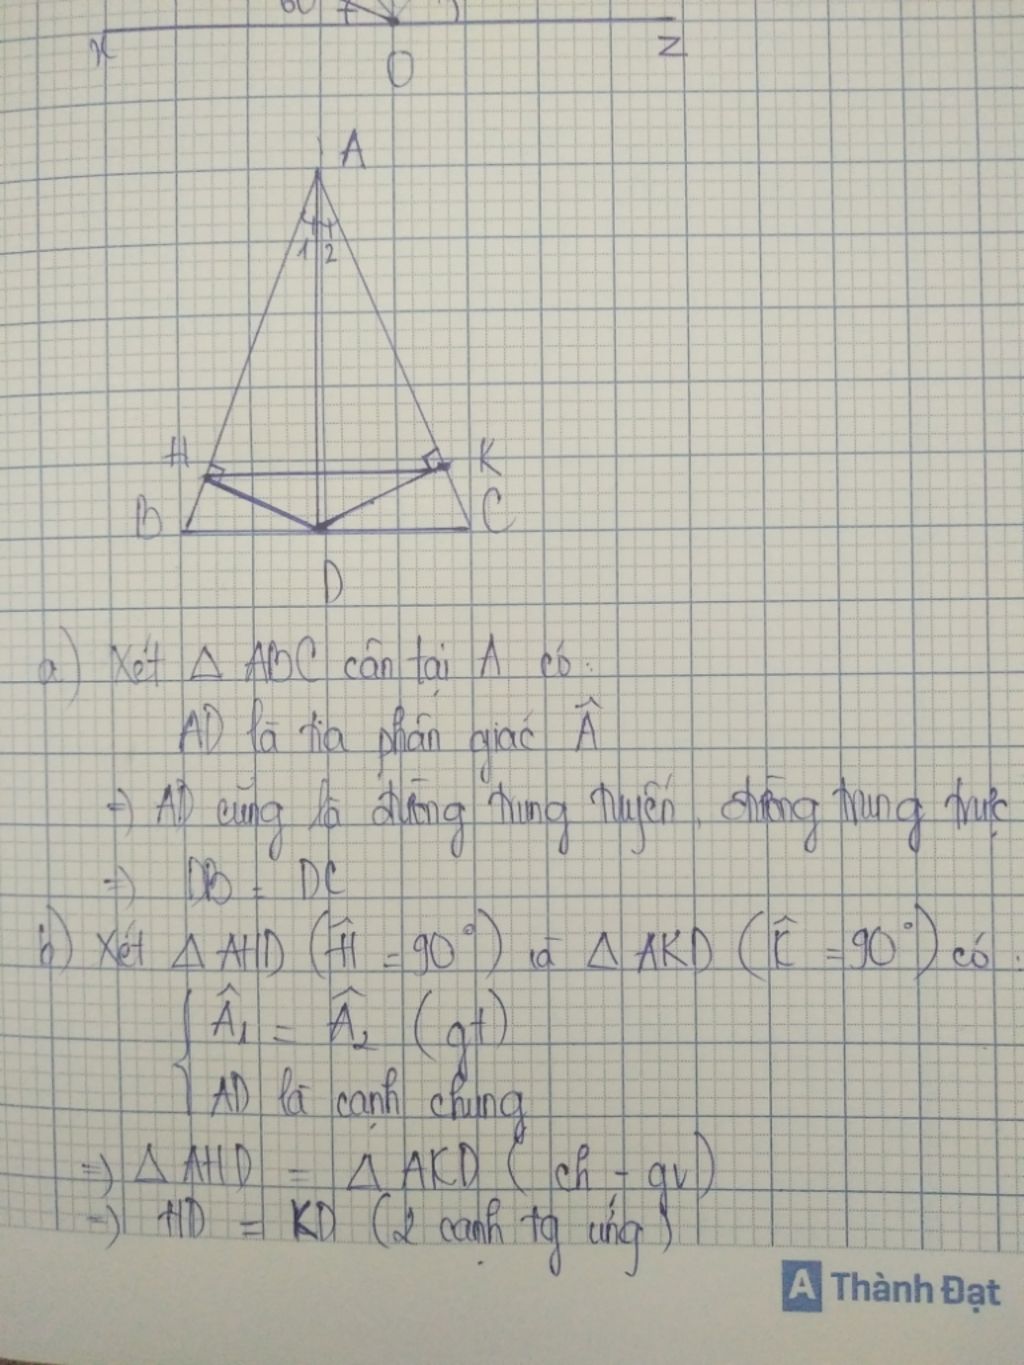 60
x
O
z
A
1 2
H
K
B
C
D
a) Xét △ ABC cân tại A có:
AD là tia phân giác Â
=) AD cũng là đường trung tuyến, đường trung trực
=) DB = DC
b) Xét △ AHD (Ĥ = 90°) và △ AKD (K̂ = 90°) có:
Â₁ = Â₂ (gt)
AD là cạnh chung
=) △ AHD = △ AKD (ch - gv)
=) HD = KD (2 cạnh tg ứng)
A Thành Đạt